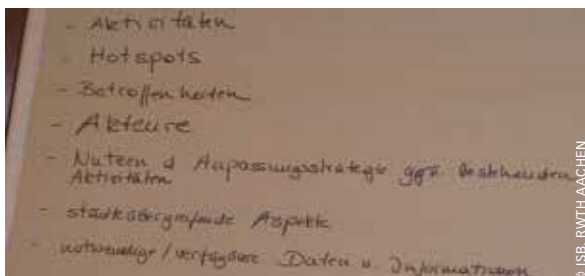 - Aktivitäten
- Hotspots
- Betroffenheiten
- Akteure
- Nutzen d Anpassungsstrategie ggü. bestehenden
Aktivitäten
- stadtübergreifende Aspekte
- notwendige/verfügbare Daten u. Informationen
ISB, RWTH AACHEN